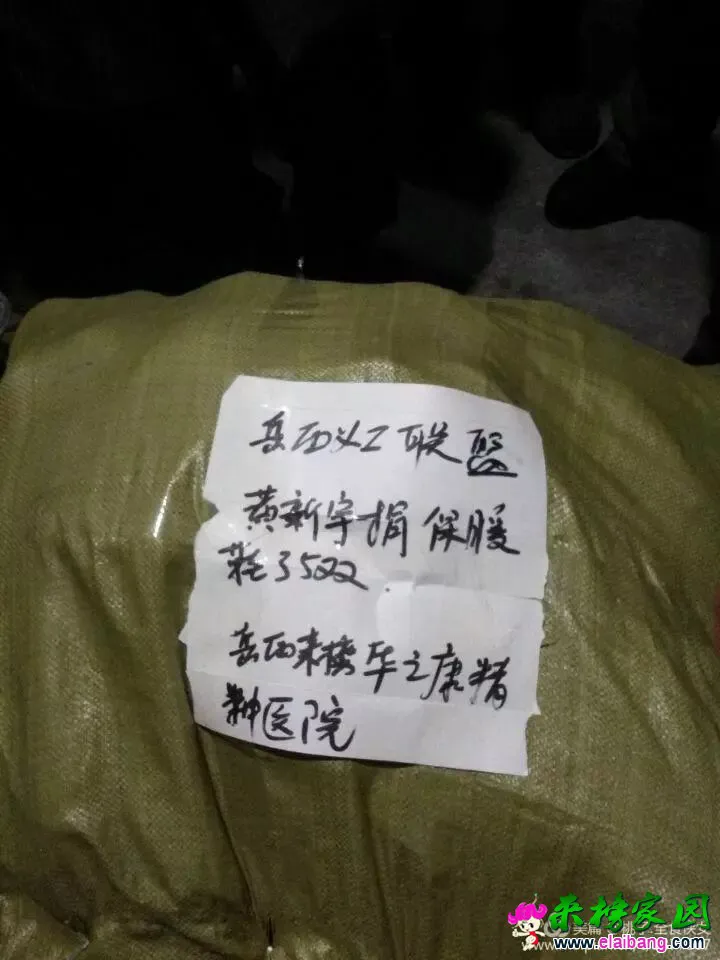 岳西义工联盟
黄新宇捐保暖
鞋35双
岳西来榜华之康精
神医院
来榜家园
www.elaibang.com
美篇